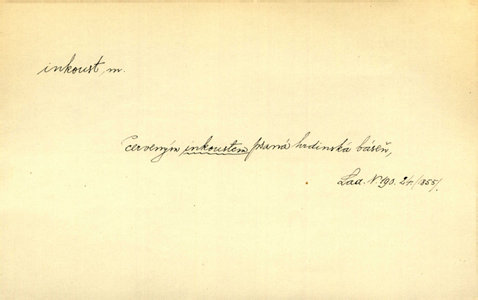 inkoust, m.
červeným inkoustem psaná hrdinská báseň,
Laa. N 190. 24. /1855/.